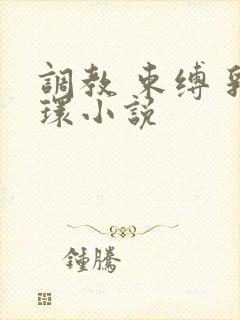 調教 束缚 乳
環小説
鍾騰